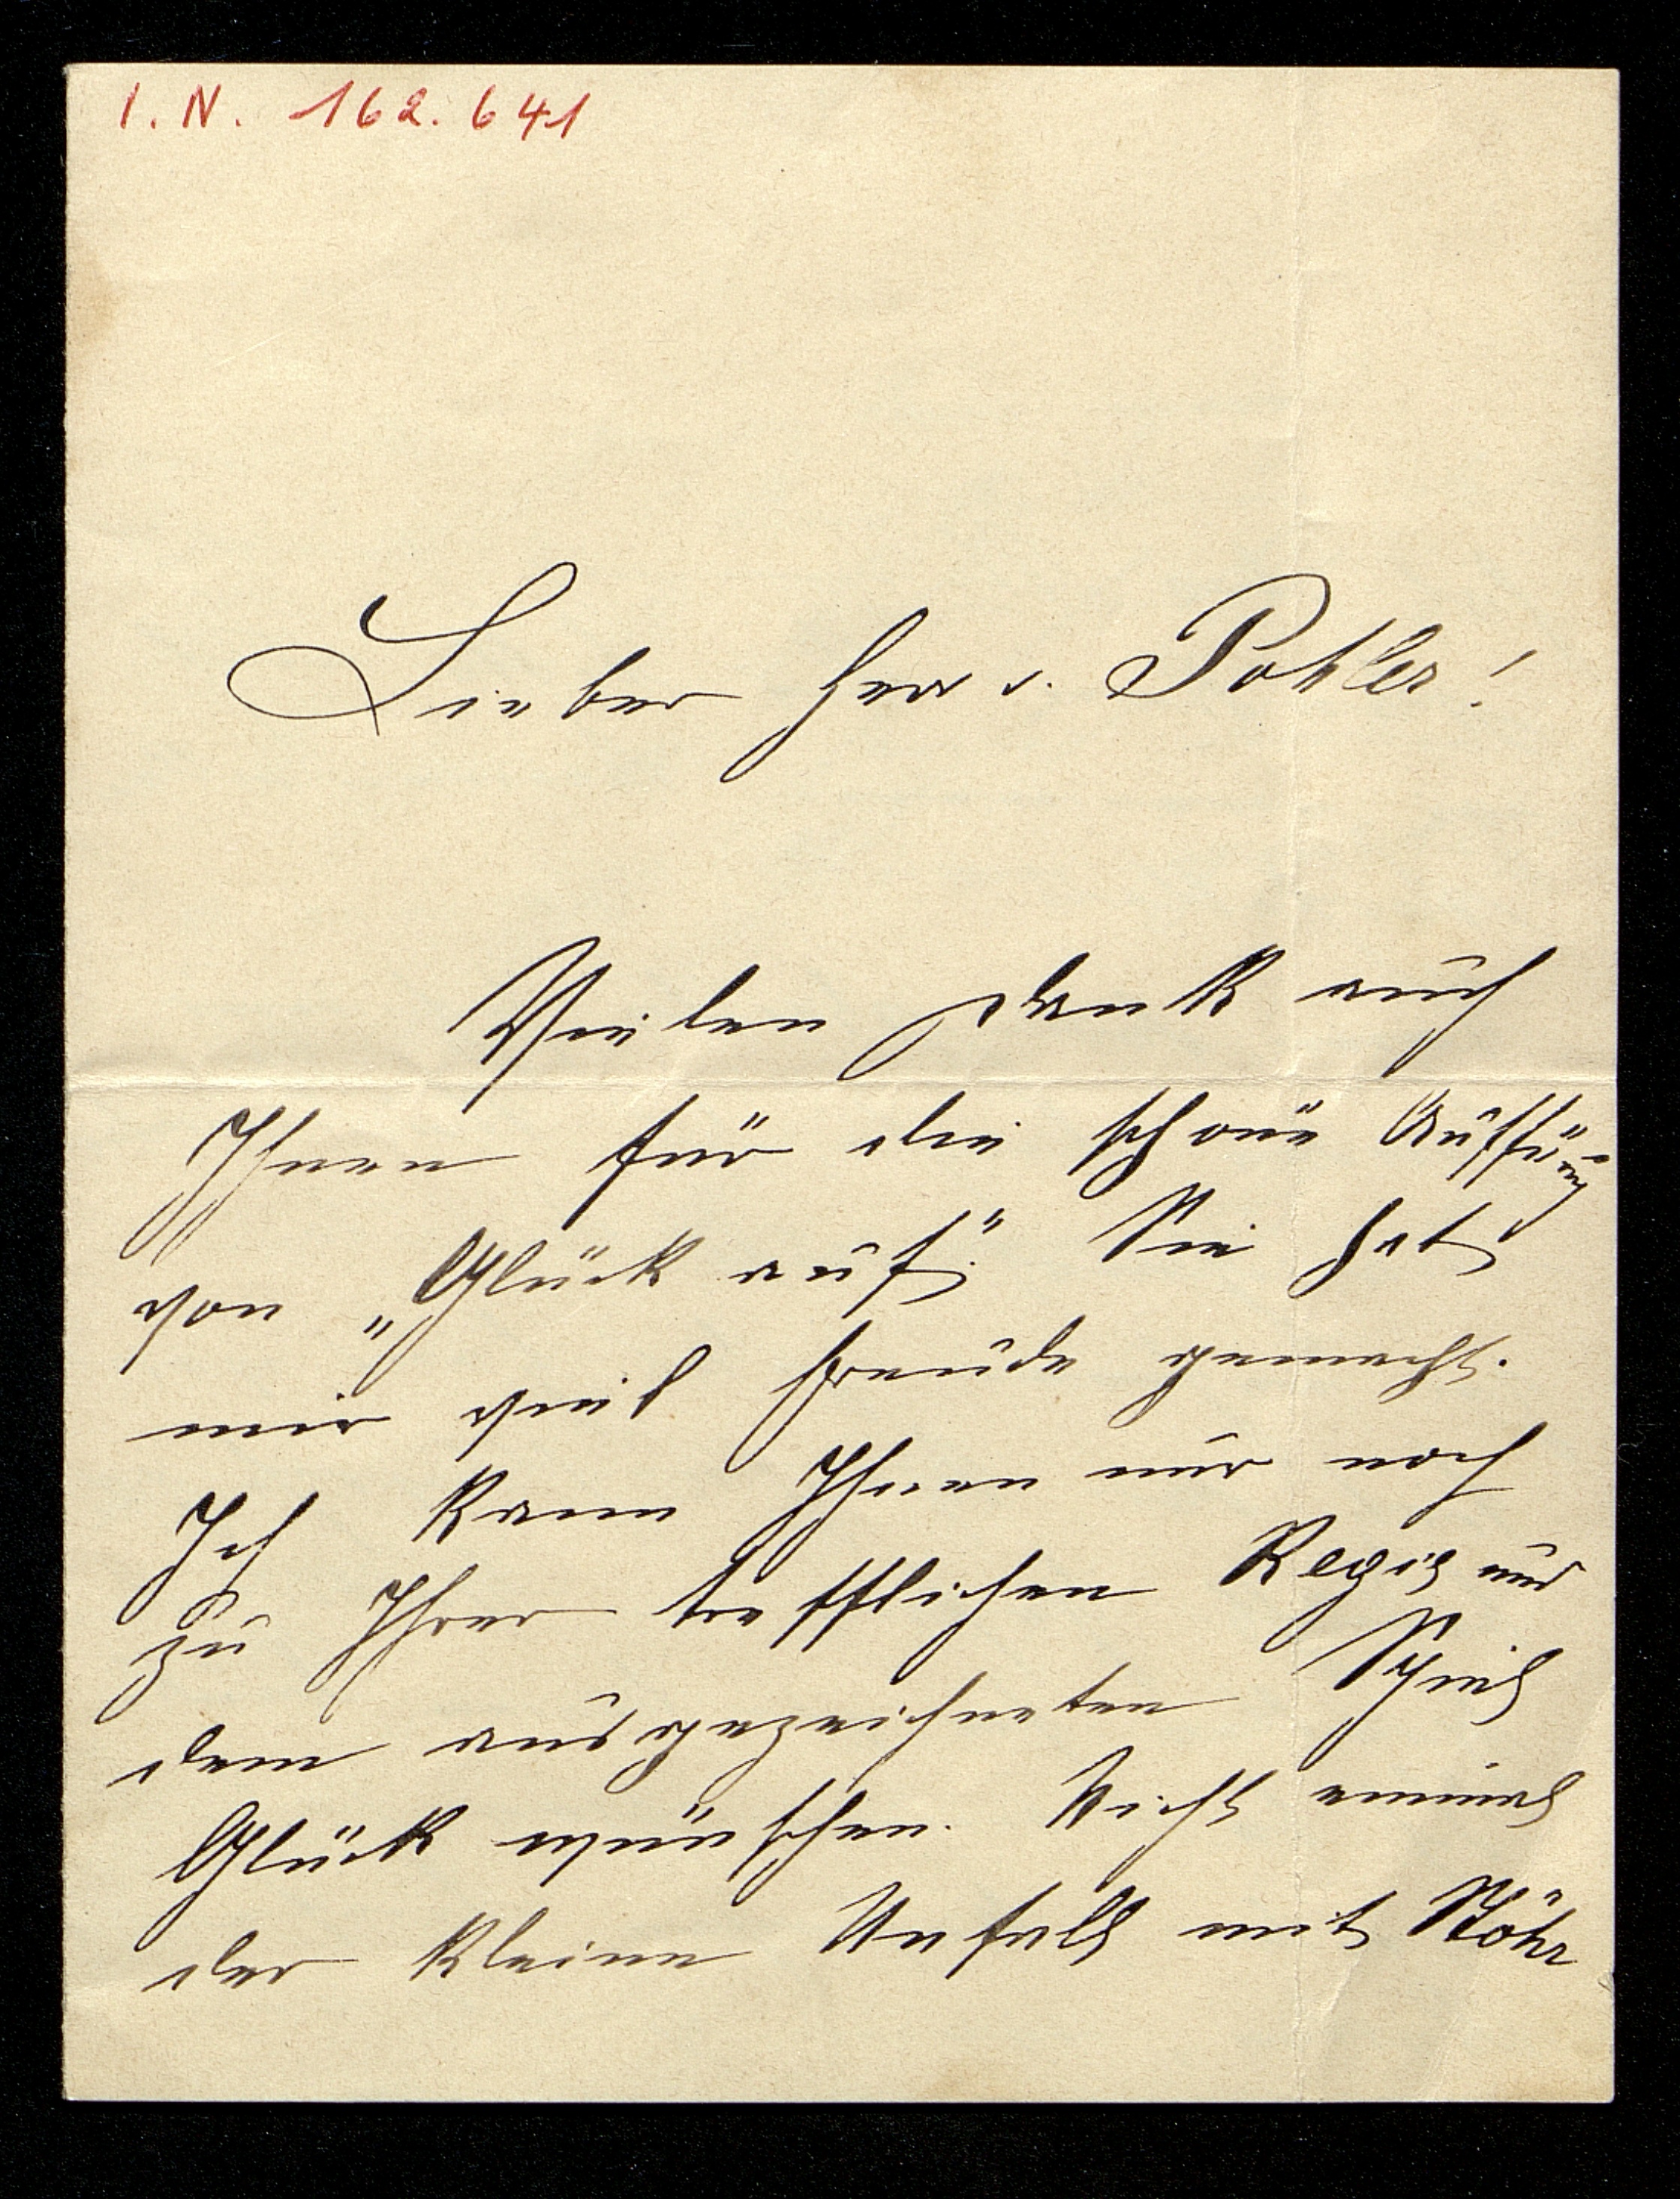 I. N. 162.641
Lieber Herr v. Pohler!
Vielen Dank auch
Ihnen für die schöne Auffü͞rung
von „Glück auf." Sie hat
mir viel Freude gemacht.
Ich kann Ihnen nur noch
zu Ihrer trefflichen Regie und
dem ausgezeichneten Spiel
Glück wünschen. Nicht einmal
der kleine Unfall mit Stöhr